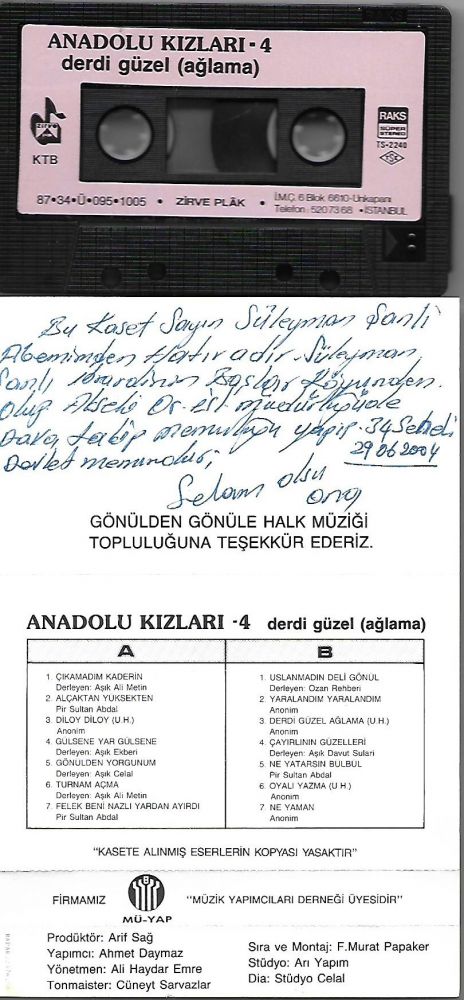 ANADOLU KIZLARI - 4
derdi güzel (ağlama)
zirve
KTB
RAKS
SÜPER
STEREO
TS-2240
TSE
87•34•Ü•095•1005 • ZİRVE PLÂK • İ.M.Ç. 6 Blok 6610-Unkapanı
Telefon: 520 73 68 •İSTANBUL
B
Bu Kaset Sayın Süleyman Şanlı
Abemimden Hatıradır. Süleyman
Şanlı Köyünden.
Oluğ Or. müdürlüğüde
takip memurluğu yapış. 34 Senedi
Davlet memurudur;
29 06 2004
Selam olsu
ona
GÖNÜLDEN GÖNÜLE HALK MÜZİĞİ
TOPLULUĞUNA TEŞEKKÜR EDERİZ.
ANADOLU KIZLARI -4 derdi güzel (ağlama)
A
1. ÇIKAMADIM KADERİN
Derleyen: Aşık Ali Metin
2. ALÇAKTAN YUKSEKTEN
Pir Sultan Abdal
3. DİLOY DİLOY (U.H.)
Anonim
4. GULSENE YAR GÜLSENE
Derleyen: Aşık Ekberi
5. GÖNULDEN YORGUNUM
Derleyen: Aşık Celal
6. TURNAM AÇMA
Derleyen: Aşık Ali Metin
7. FELEK BENİ NAZLI YARDAN AYIRDI
Pir Sultan Abdal
B
1. USLANMADIN DELİ GÖNUL
Derleyen: Ozan Rehberi
2. YARALANDIM YARALANDIM
Anonim
3. DERDİ GÜZEL AĞLAMA (U.H.)
Anonim
4. ÇAYIRLININ GÜZELLERİ
Derleyen: Aşık Davut Sulari
5. NE YATARSIN BULBUL
Pir Sultan Abdal
6. OYALI YAZMA (U.H.)
Anonim
7. NE YAMAN
Anonim
"KASETE ALINMIŞ ESERLERİN KOPYASI YASAKTIR"
FİRMAMIZ
MÜ-YAP
"MÜZİK YAPIMCILARI DERNEĞİ ÜYESİDİR"
Prodüktör: Arif Sağ
Yapımcı: Ahmet Daymaz
Yönetmen: Ali Haydar Emre
Tonmaister: Cüneyt Sarvazlar
Sıra ve Montaj: F.Murat Papaker
Stüdyo: Arı Yapım
Dia: Stüdyo Celal